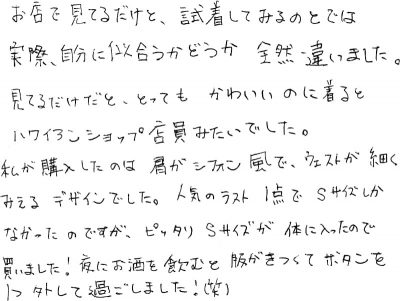 お店で見てるだけと、試着してみるのとでは
実際、自分に似合うかどうか 全然違いました。
見てるだけだと、とっても かわいいのに着ると
ハワイアンショップ店員みたいでした。
私が購入したのは 肩がシフォン風で、ウエストが 細く
みえる デザインでした。人気のラスト 1点で Sサイズしか
なかったのですが、ピッタリ Sサイズが 体に入ったので
買いました！夜にお酒を飲むと 服がきつくて ボタンを
1つ外して過ごしました！(笑)